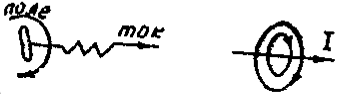 поле
ток
I